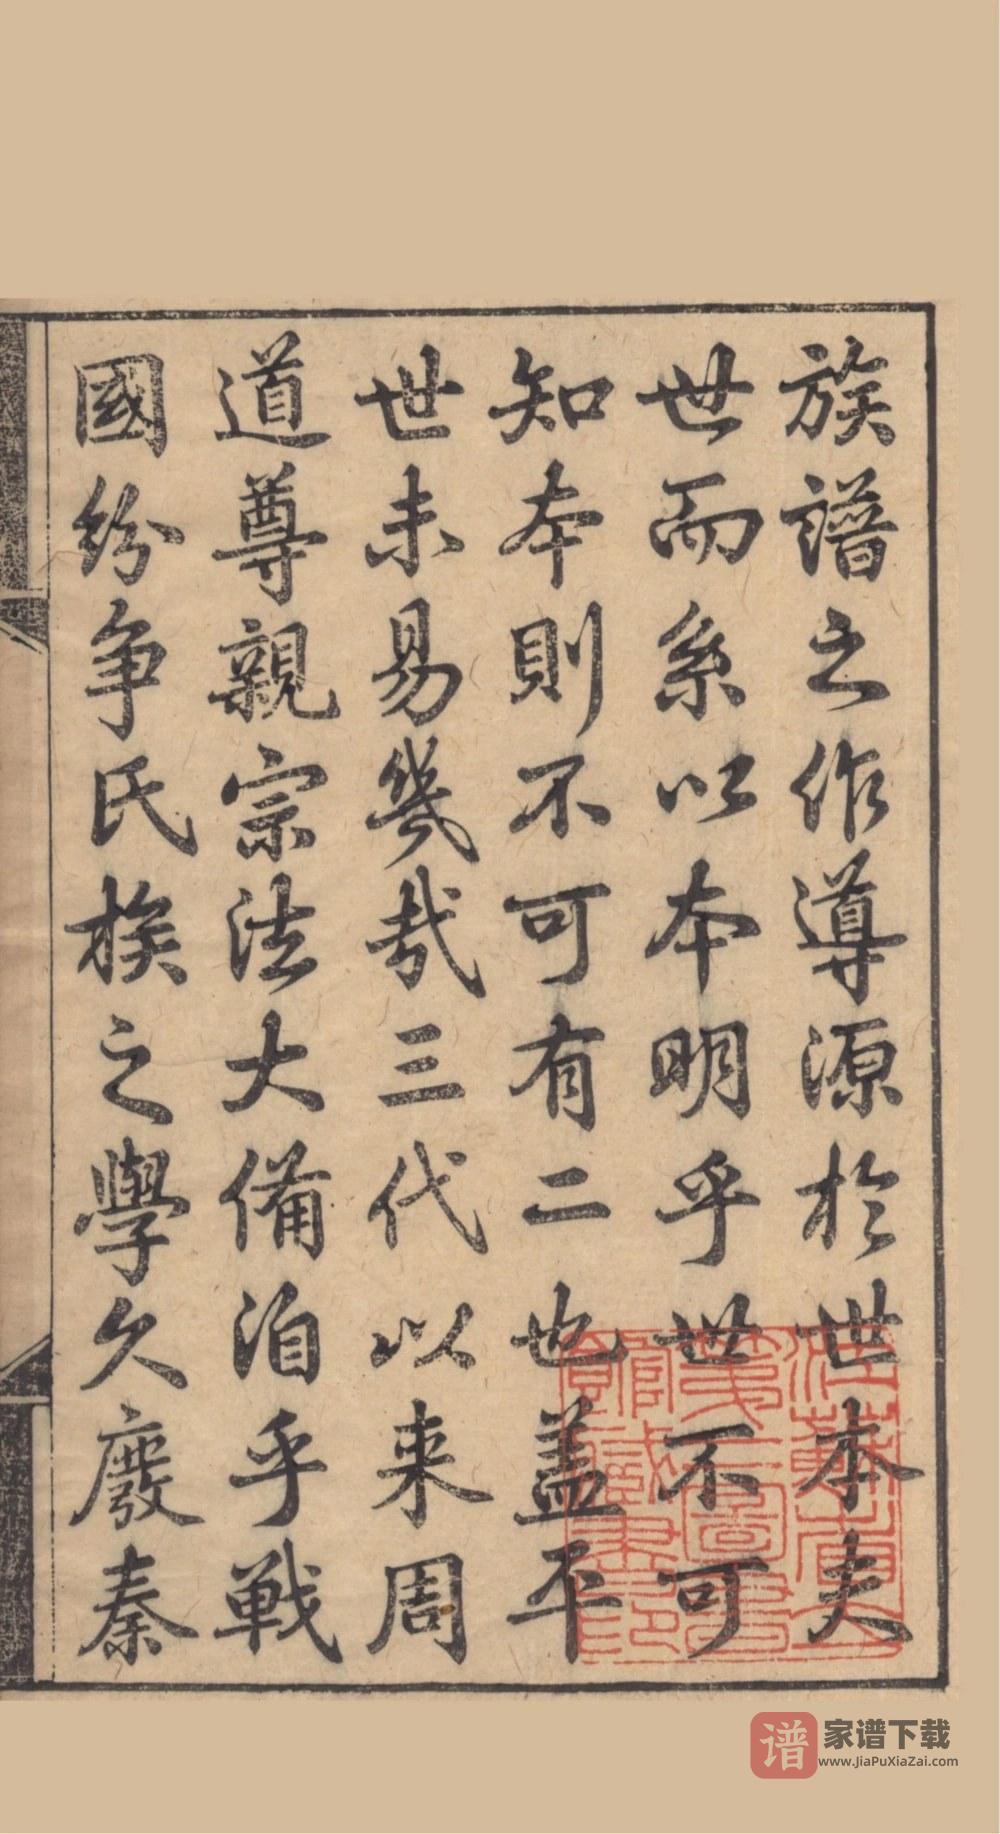 族譜之作導源於世本夫
世而系以本明乎世不可
知本則不可有二也蓋平
世未易幾哉三代以来周
道尊親宗法大備洎乎戦
國紛争氏族之學久廢秦
谱 家谱下载
www.JiaPuXiaZai.com